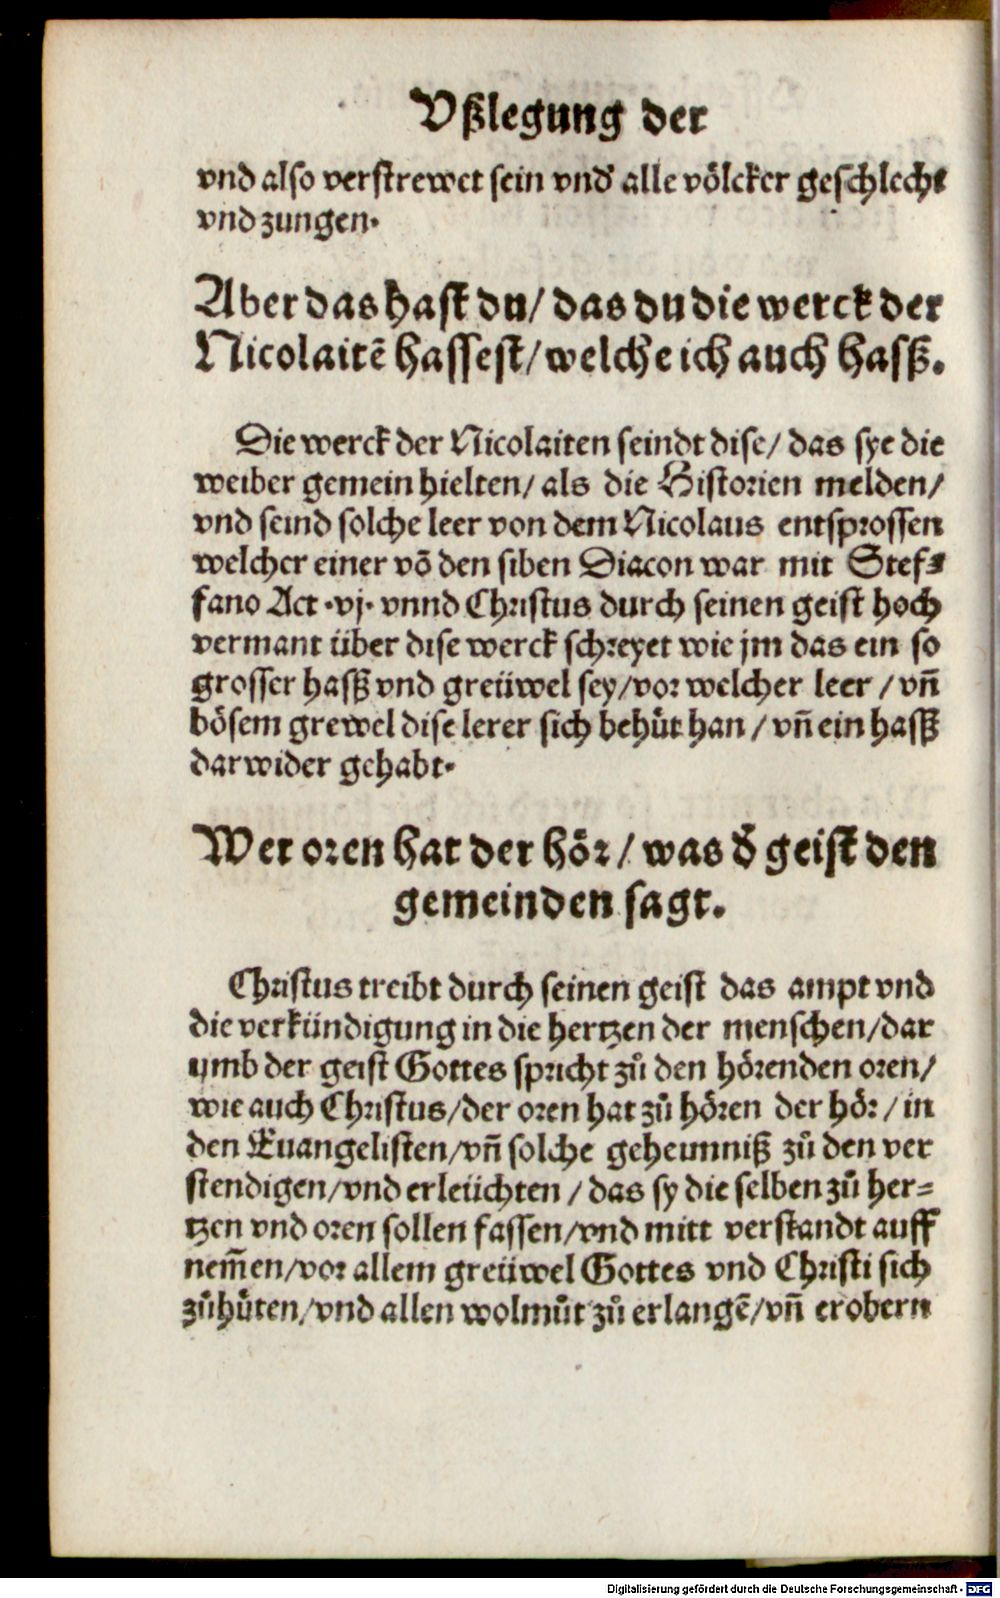 Vßlegung der
vnd also verstrewet sein vnd' alle völcker geschlecht
vnd zungen.
Aber das hast du/ das du die werck der
Nicolaitē hassest/ welche ich auch hasß.
Die werck der Nicolaiten seindt dise/ das sye die
weiber gemein hielten/ als die Historien melden/
vnd seind solche leer von dem Nicolaus entsprossen
welcher einer võ den siben Diacon war mit Stef⸗
fano Act .vj. vnnd Christus durch seinen geist hoch
vermant über dise werck schreyet wie jm das ein so
grosser hasß vnd greüwel sey/ vor welcher leer / vñ
bösem grewel dise lerer sich behůt han / vñ ein hasß
darwider gehabt.
Wer oren hat der hör / was d' geist den
gemeinden sagt.
Christus treibt durch seinen geist das ampt vnd
die verkündigung in die hertzen der menschen/ dar
vmb der geist Gottes spricht zů den hörenden oren/
wie auch Christus/ der oren hat zů hören der hör / in
den Euangelisten/ vñ solche geheimniß zů den ver
stendigen/ vnd erleüchten / das sy die selben zů her⸗
tzen vnd oren sollen fassen/ vnd mitt verstandt auff
nem̃en/ vor allem greüwel Gottes vnd Christi sich
zůhůten/ vnd allen wolmůt zů erlangē/ vñ erobern
Digitalisierung gefördert durch die Deutsche Forschungsgemeinschaft - DFG